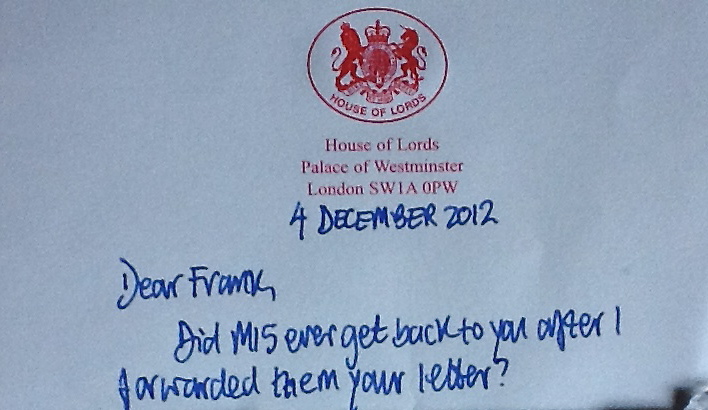 HOUSE OF LORDS
House of Lords
Palace of Westminster
London SW1A 0PW
4 DECEMBER 2012
Dear Frank,
Did MI5 ever get back to you after I
forwarded them your letter?